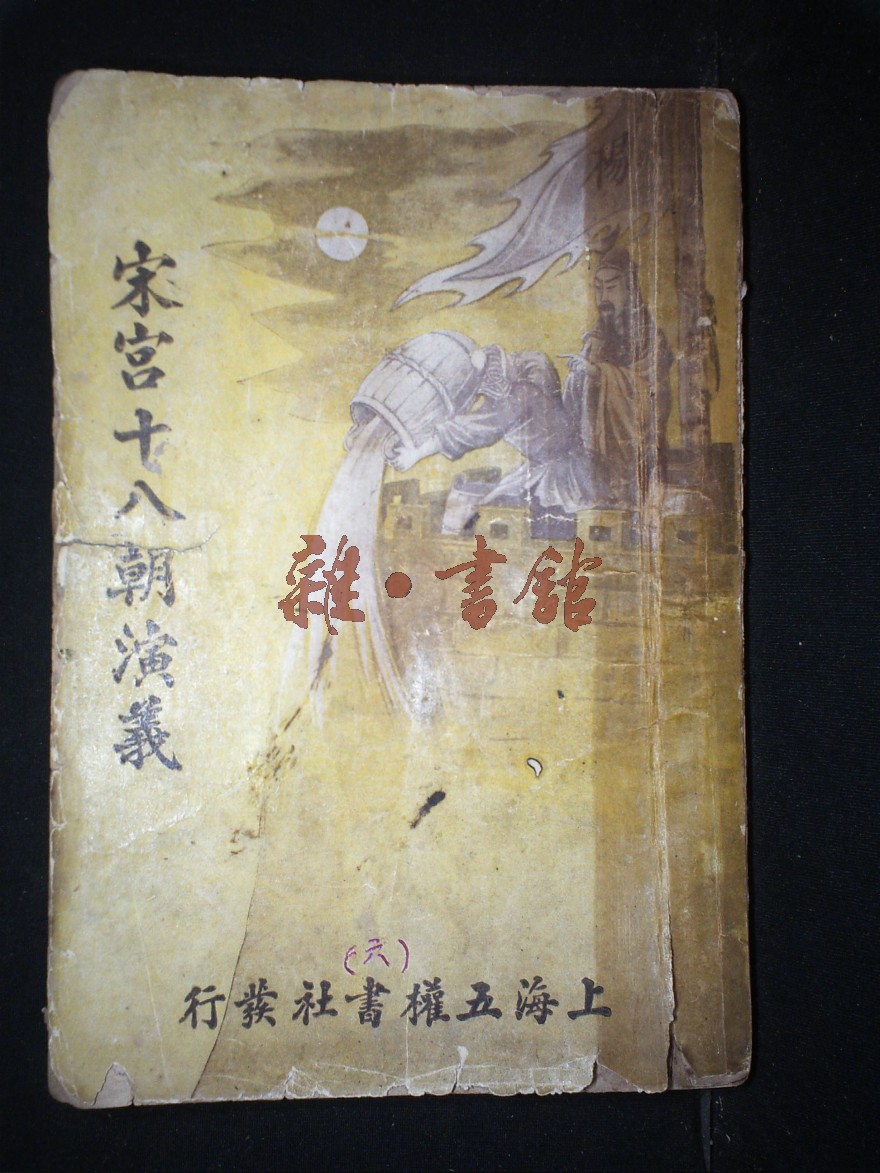 楊
宋宮十八朝演義
雜·書館
(六)
上海五權書社發行